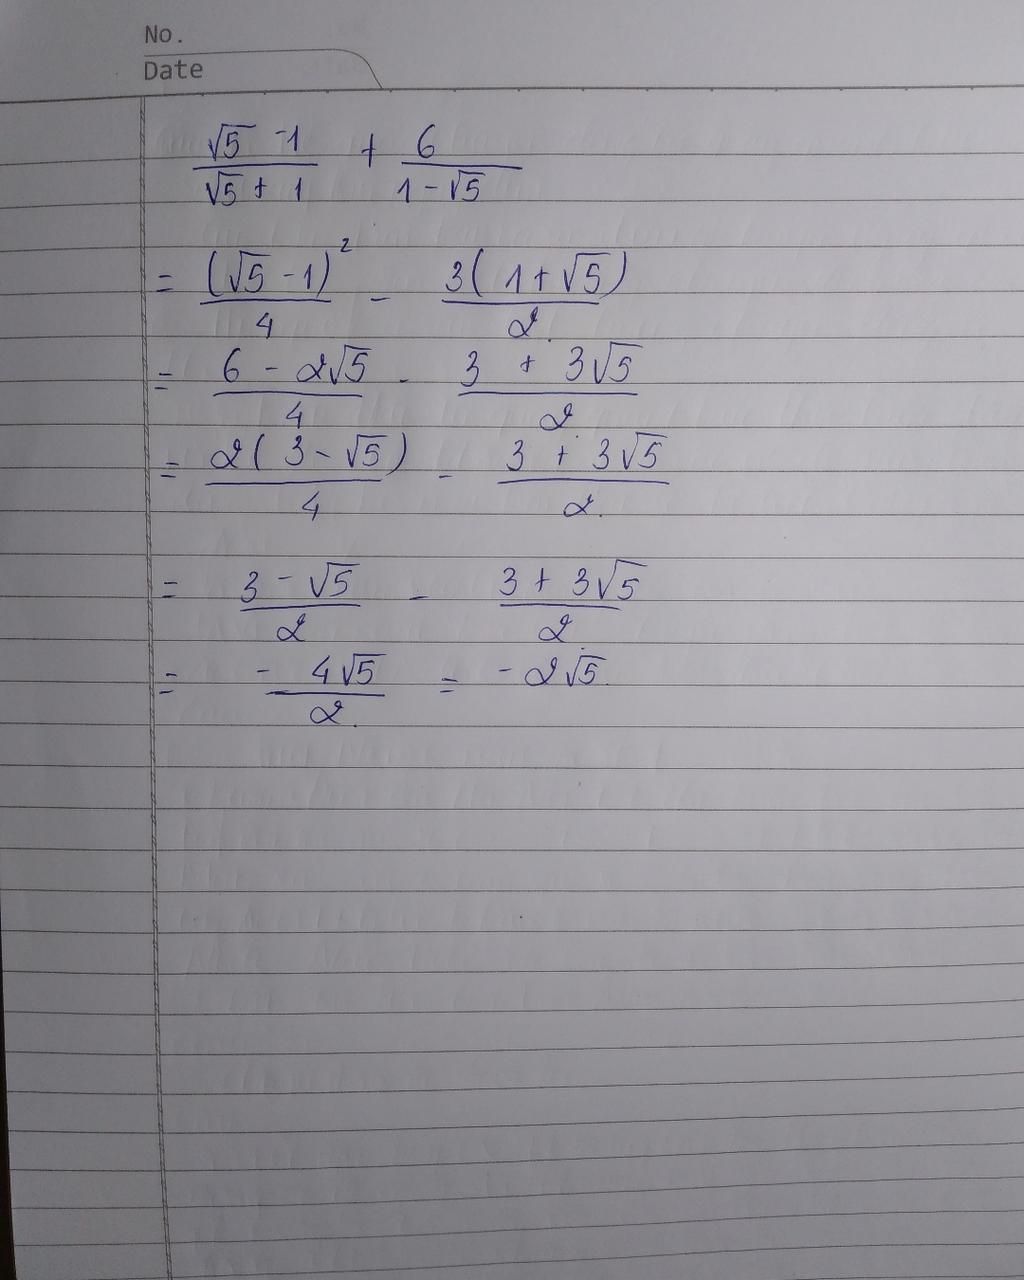 No.
Date
(√5 -1)/(√5 + 1) + 6/(1 - √5)
= (√5 - 1)²/4 - 3(1 + √5)/2.
= (6 - 2√5)/4 - (3 + 3√5)/2.
= 2(3 - √5)/4 - (3 + 3√5)/2.
= (3 - √5)/2 - (3 + 3√5)/2.
= - 4√5/2. = -2√5.